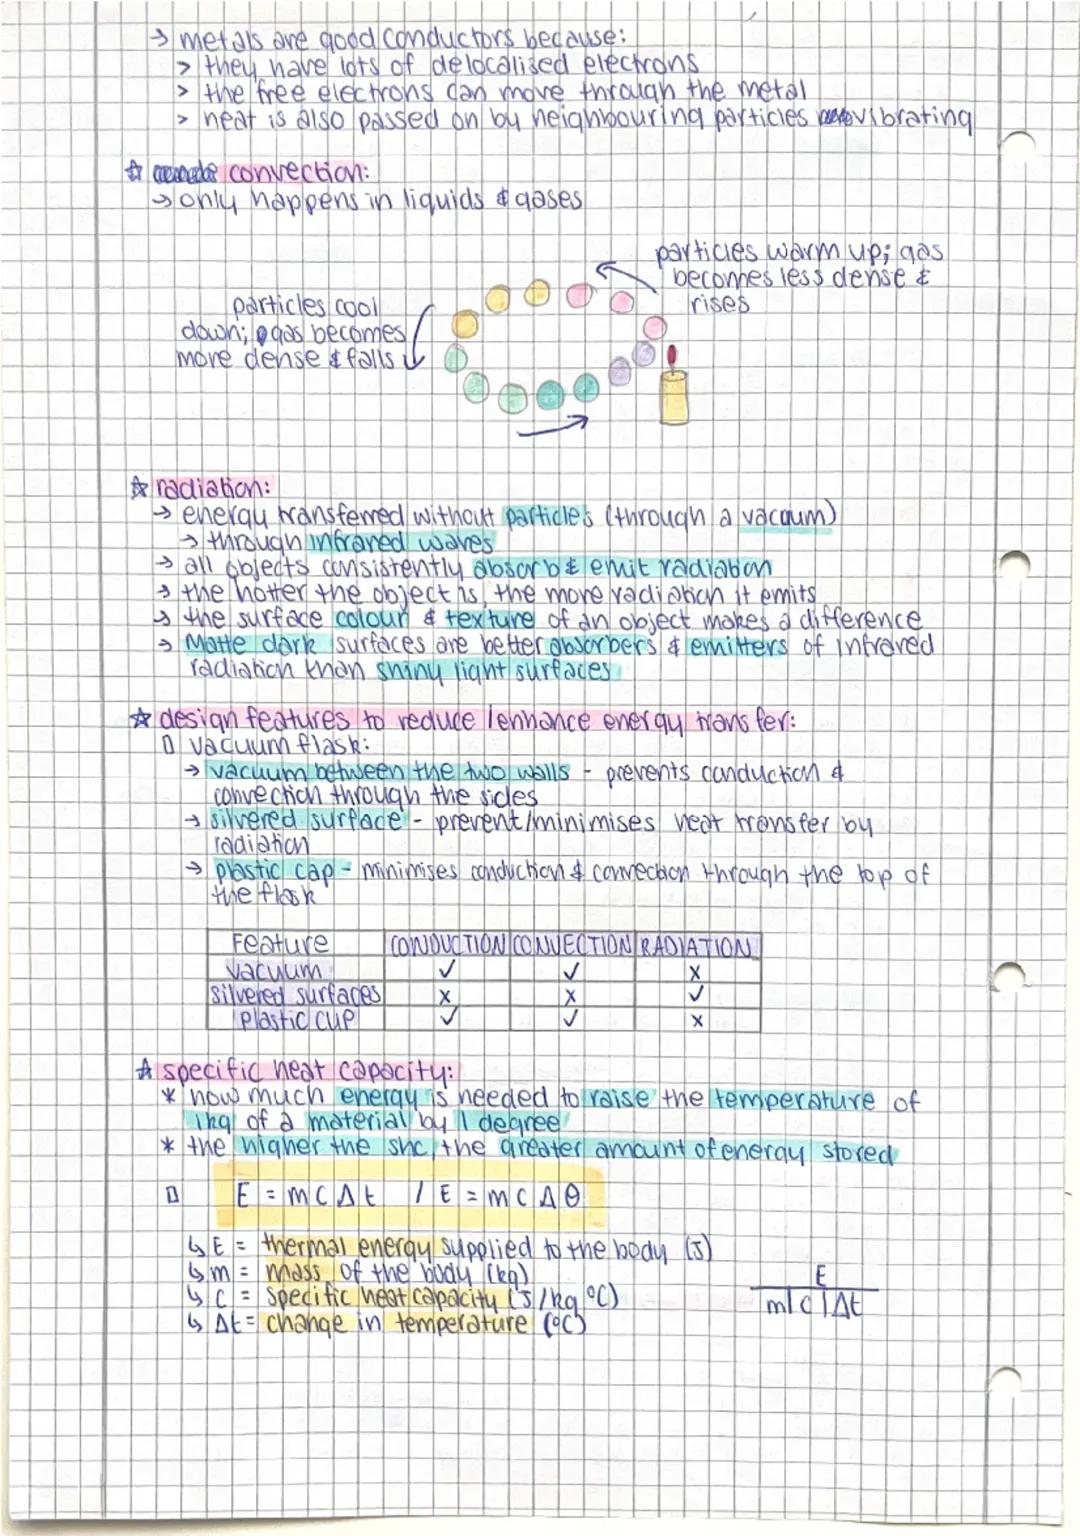 → metals are good conductors because:
> they have lots of delocalised electrons
> the free electrons can move through the metal
> heat is also passed on by neighbouring particles vibrating
☆ convection:
→ only happens in liquids & gases
particles warm up; gas
becomes less dense &
rises
particles cool
down; gas becomes
more dense & falls
☆ radiation:
→ energy transferred without particles (through a vacuum)
→ through infrared waves
→ all objects consistently absorb & emit radiation
→ the hotter the object is, the more radiation it emits
→ the surface colour & texture of an object makes a difference
→ Matte dark surfaces are better absorbers & emitters of infrared
radiation than shiny light surfaces
☆ design features to reduce/enhance energy transfer:
▯ vacuum flask:
→ vacuum between the two walls - prevents conduction &
convection through the sides
→ silvered surface - prevent/minimises heat transfer by
radiation
→ plastic cap - minimises conduction & convection through the top of
the flask
Feature CONDUCTION CONVECTION RADIATION
vacuum ✓ ✓ x
silvered surfaces x x ✓
plastic cup ✓ ✓ x
☆ specific heat capacity:
* how much energy is needed to raise the temperature of
1kg of a material by 1 degree
* the higher the shc, the greater amount of energy stored
▯ E = mcΔt / E = mcΔθ
↳ E = thermal energy supplied to the body (J)
↳ m = mass of the body (kg)
↳ c = specific heat capacity (J/kg °C)
↳ Δt = change in temperature (°C)
E
m|c|Δt